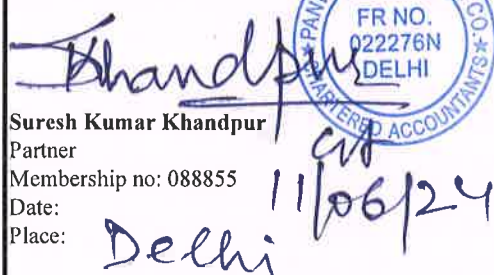 FR NO.
022276N
DELHI
CHARTERED ACCOUNTANTS
Khandpur
Suresh Kumar Khandpur
Partner
Membership no: 088855
Date: 11/06/24
Place: Delhi